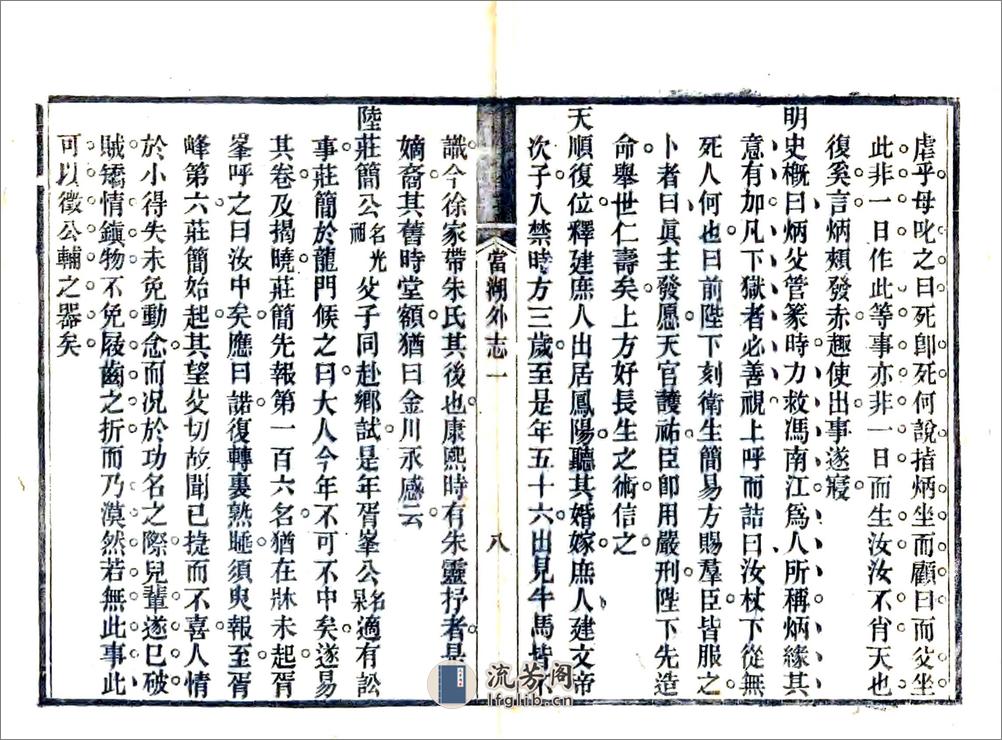 虐乎母叱之曰死卽死何說指炳坐而顧曰而父坐
此非一日作此等事亦非一日而生汝汝不肖天也
復奚言炳頰發赤趣使出事遂寢
明史槪曰炳父管篆時力救馮南江爲人所稱炳緣其
意有加凡下獄者必善視上呼而詰曰汝杖下從無
死人何也曰前陛下刻衛生簡易方賜羣臣皆服之
卜者曰眞主發愿天官護祐臣卽用嚴刑陛下先造
命舉世仁壽矣上方好長生之術信之
天順復位釋建庶人出居鳳陽聽其婚嫁庶人建文帝
次子入禁時方三歲至是年五十六出見牛馬皆不
當湖外志一
八
識今徐家帶朱氏其後也康熙時有朱靈抒者是
嫡裔其舊時堂額猶曰金川永感云
陸莊簡公名光祖父子同赴鄉試是年胥峯公名杲適有訟
事莊簡於龍門候之曰大人今年不可不中矣遂易
其卷及揭曉莊簡先報第一百六名猶在牀未起胥
峯呼之曰汝中矣應曰諾復轉裏熟睡須臾報至胥
峰第六莊簡始起其望父切故聞已捷而不喜人情
於小得失未免動念而況於功名之際兒輩遂已破
賊矯情鎭物不免屐齒之折而乃漠然若無此事此
可以徵公輔之器矣
流芳阁
lfglib.cn